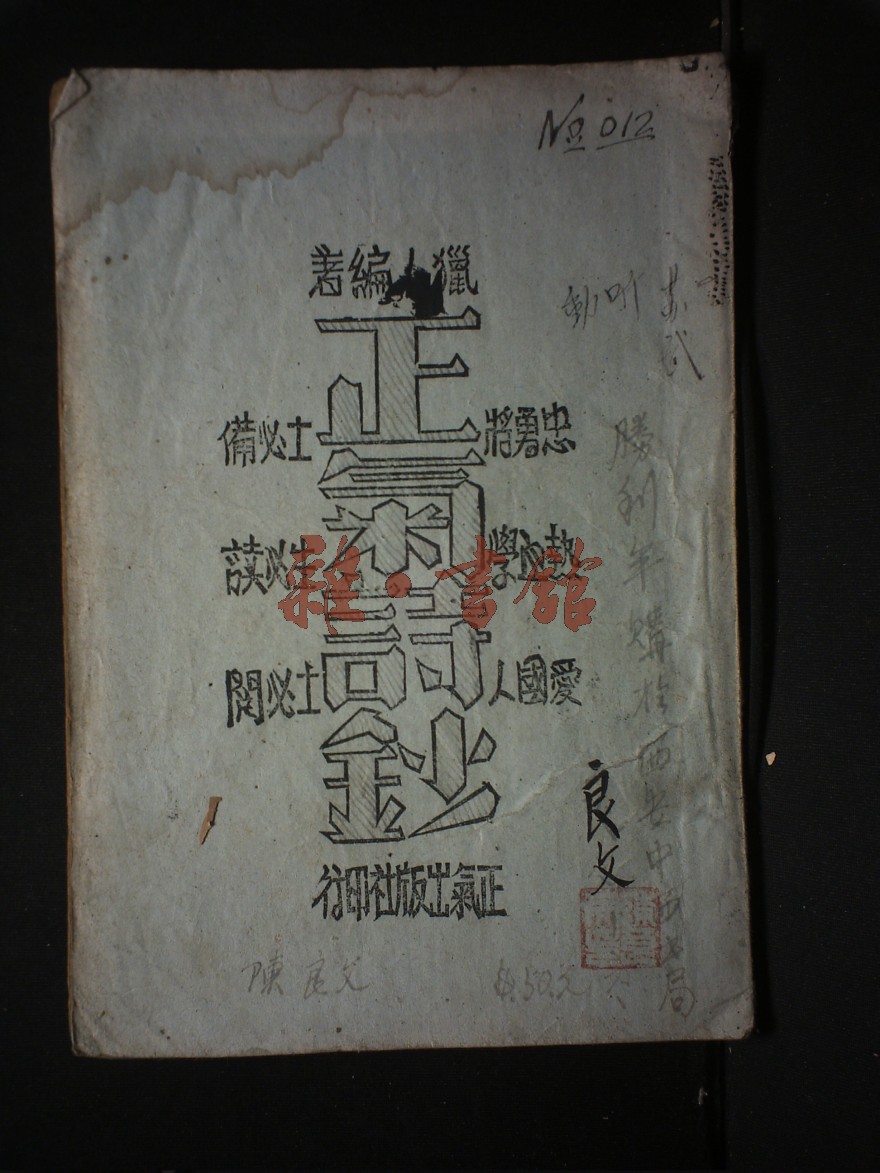 No 012
獵人編著
正氣詩鈔
忠勇將士必備
熱血學生必讀
愛國人士必閱
正氣出版社印行
勝利年購於西安中正書局
良文
陳良文
雜·書館